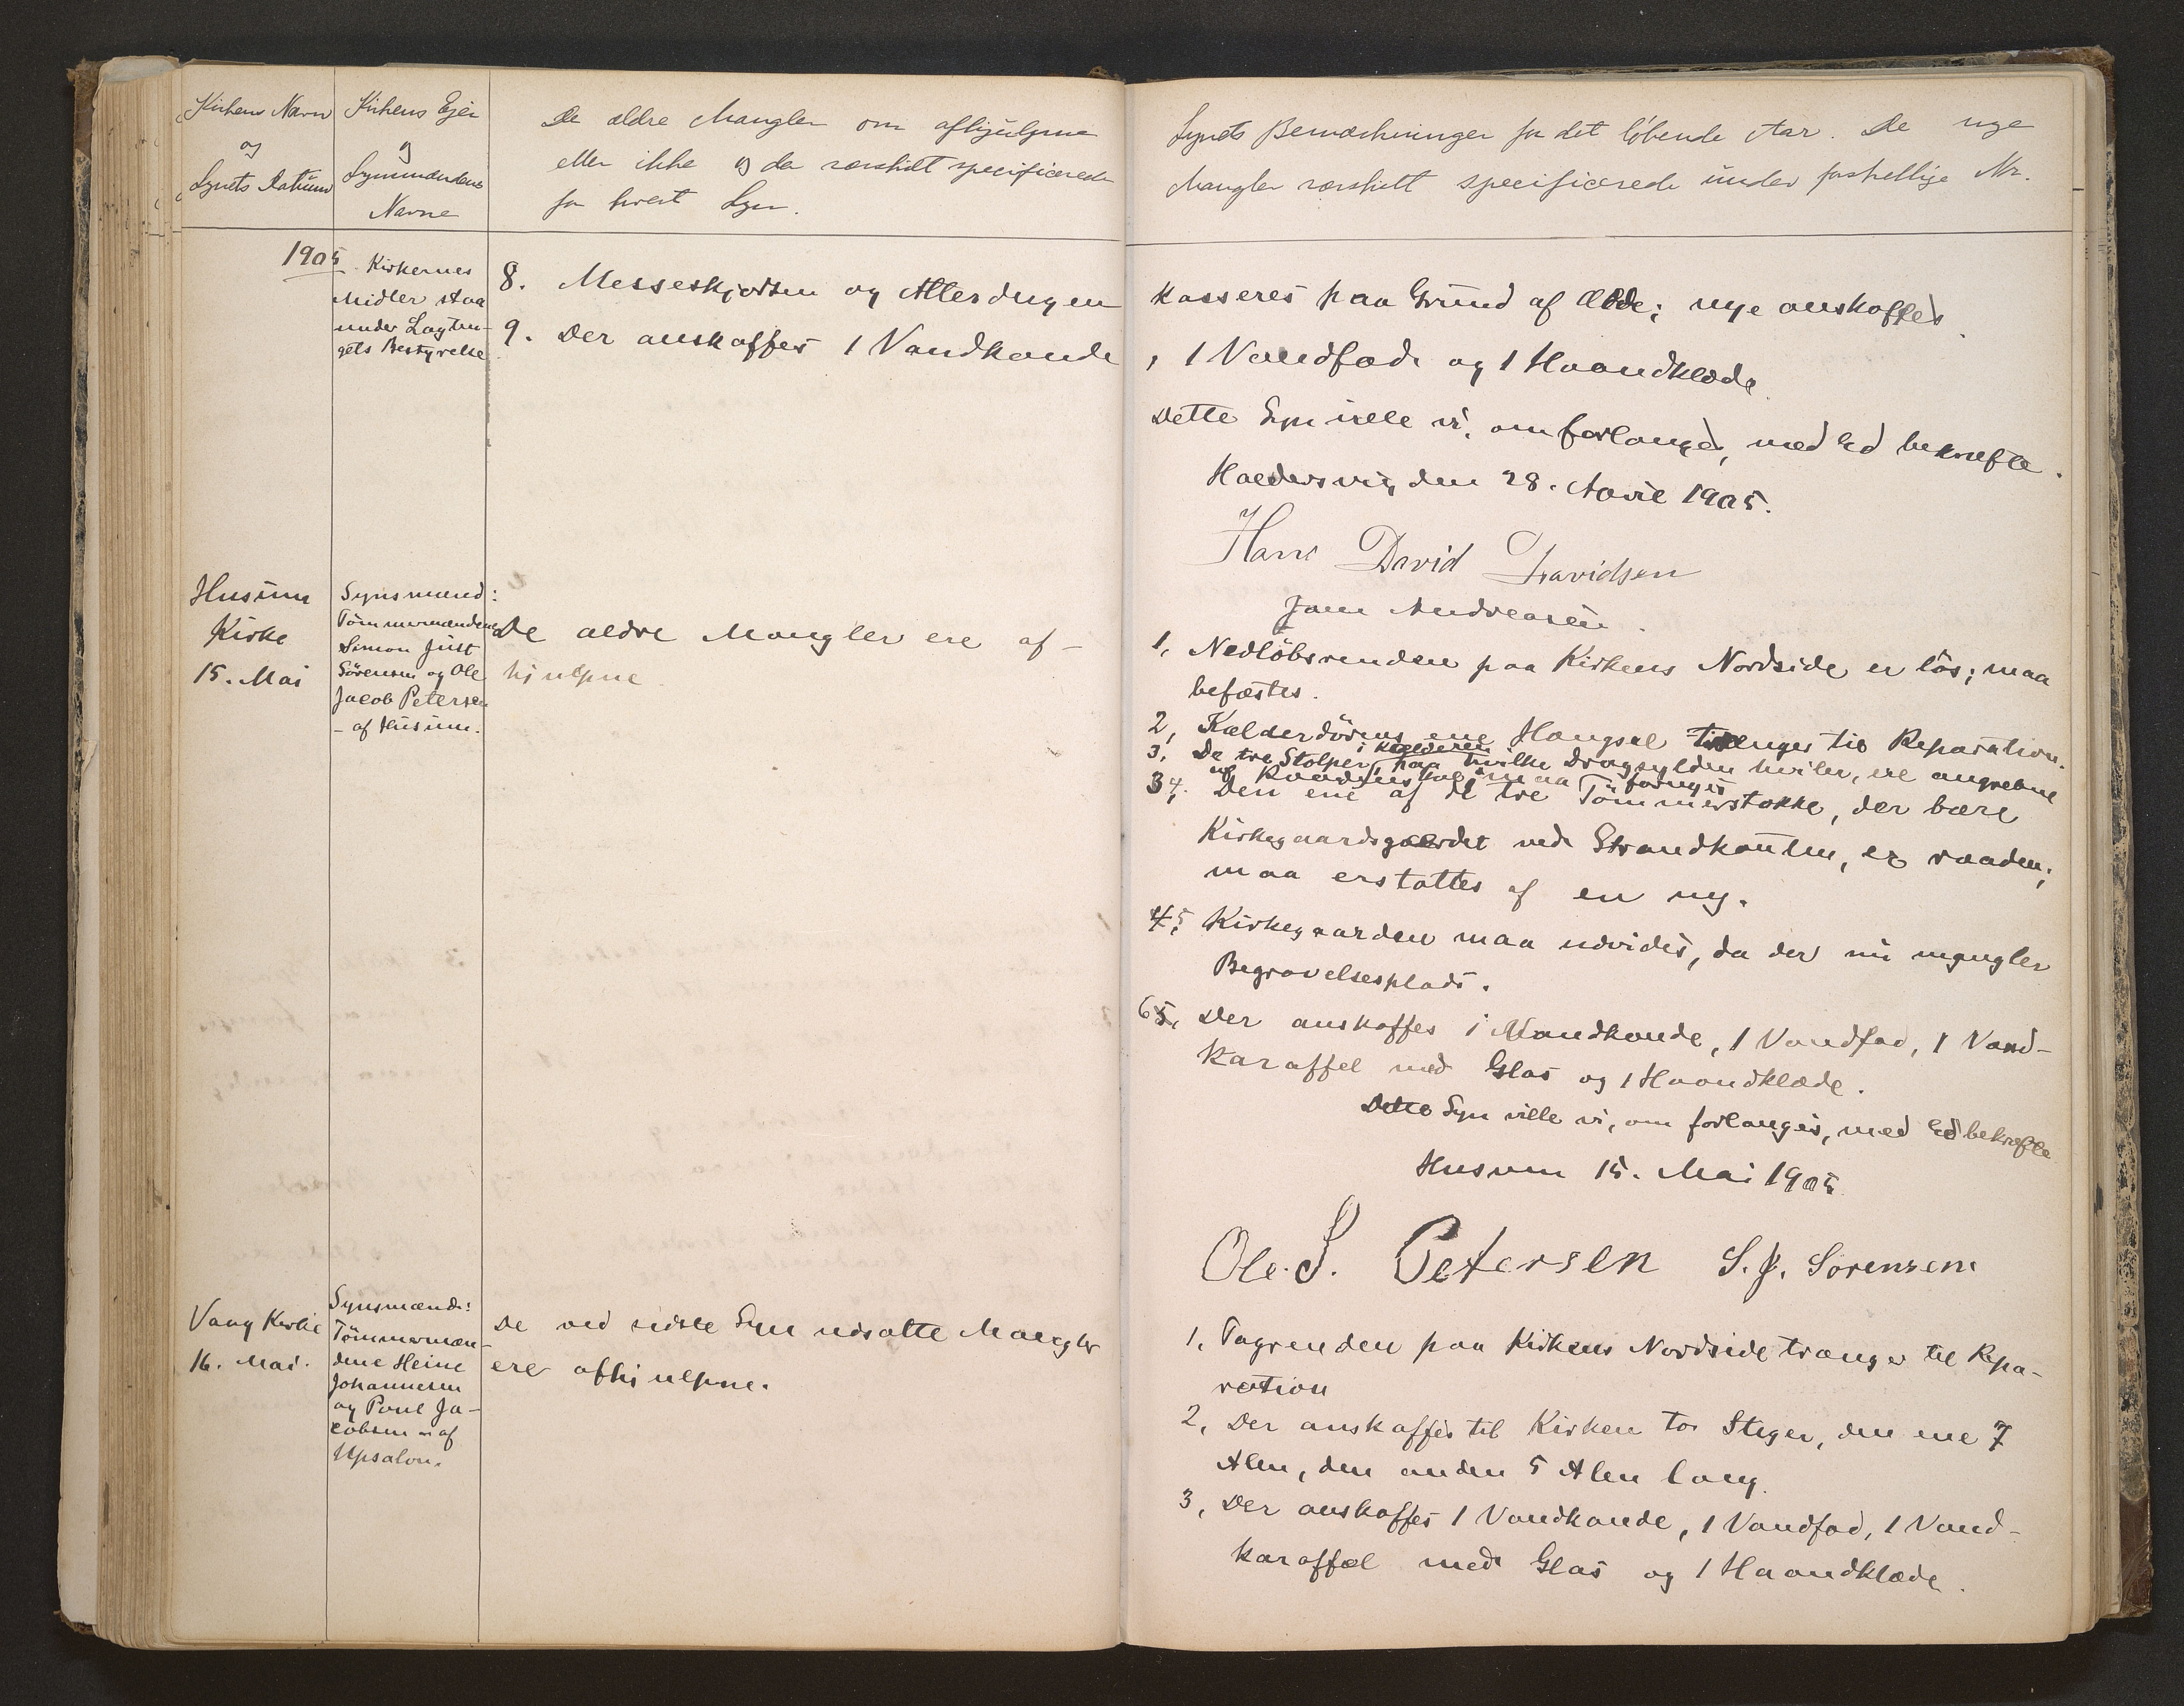 Kirkens Navn
og
Synets Datum
Kirkens Ejer
og
Synsmændenes
Navne
De ældre Mangler om afhjulpne
eller ikke og da særskilt specificerede
for hvert Syn.
Synets Bemærkninger for det löbende Aar. De nye
Mangler særskilt specificerede under forskellige Nr.
1905
Kirkernes
Midler staa
under Lagtin-
gets Bestyrelse
8. Messeskjorten og Alterdugen
kasseres paa Grund af Ælde; nye anskaffes.
9. Der anskaffes 1 Vandkande
, 1 Vandfad og 1 Haandklæde.
Dette Syn ville vi, om forlanges, med Ed bekræfte.
Haldersvig, den 28. April 1905.
Hans David Davidsen
Joen Andreasen.
Husum
Kirke
15. Mai
Synsmænd:
Tömmermændene
Simon Just
Sörensen og Ole
Jacob Petersen
- af Husum.
De ældre Mangler ere af-
hjulpne
1, Nedlöbsrenden paa Kirkens Nordside er lös; maa
befæstes.
2, Kælderdörens ene Hængsel trænger til Reparation.
3, De tre Stolper i Kælderen, paa hvilke Dragsylden hviler, ere angrebne
af Raadenskab; maa fornyes
3 4. Den ene af de tre Tömmerstokke, der bære
Kirkegaardsgærdet ved Strandkanten, er raaden;
maa erstattes af en ny.
4 5, Kirkegaarden maa udvides, da der nu mangler
Begravelsesplads.
6 5, Der anskaffes 1 Vandkande, 1 Vandfad, 1 Vand-
karaffel med Glas og 1 Haandklæde.
Dette Syn ville vi, om forlanges, med Ed bekræfte
Husum 15. Mai 1905
Ole. J. Petersen S. J. Sörensen
Vaag Kirke
16. Mai.
Synsmænd:
Tömmermæn-
dene Heine
Johannesen
og Poul Ja-
cobsen - af
Upsalon.
De ved sidste Syn udsatte Mangler
ere afhjulpne.
1, Tagrenden paa Kirkens Nordside trænger til Repa-
ration
2, Der anskaffes til Kirken to Stiger, den ene 7
Alen, den anden 5 Alen lang.
3, Der anskaffes 1 Vandkande, 1 Vandfad, 1 Vand-
karaffel med Glas og 1 Haandklæde.